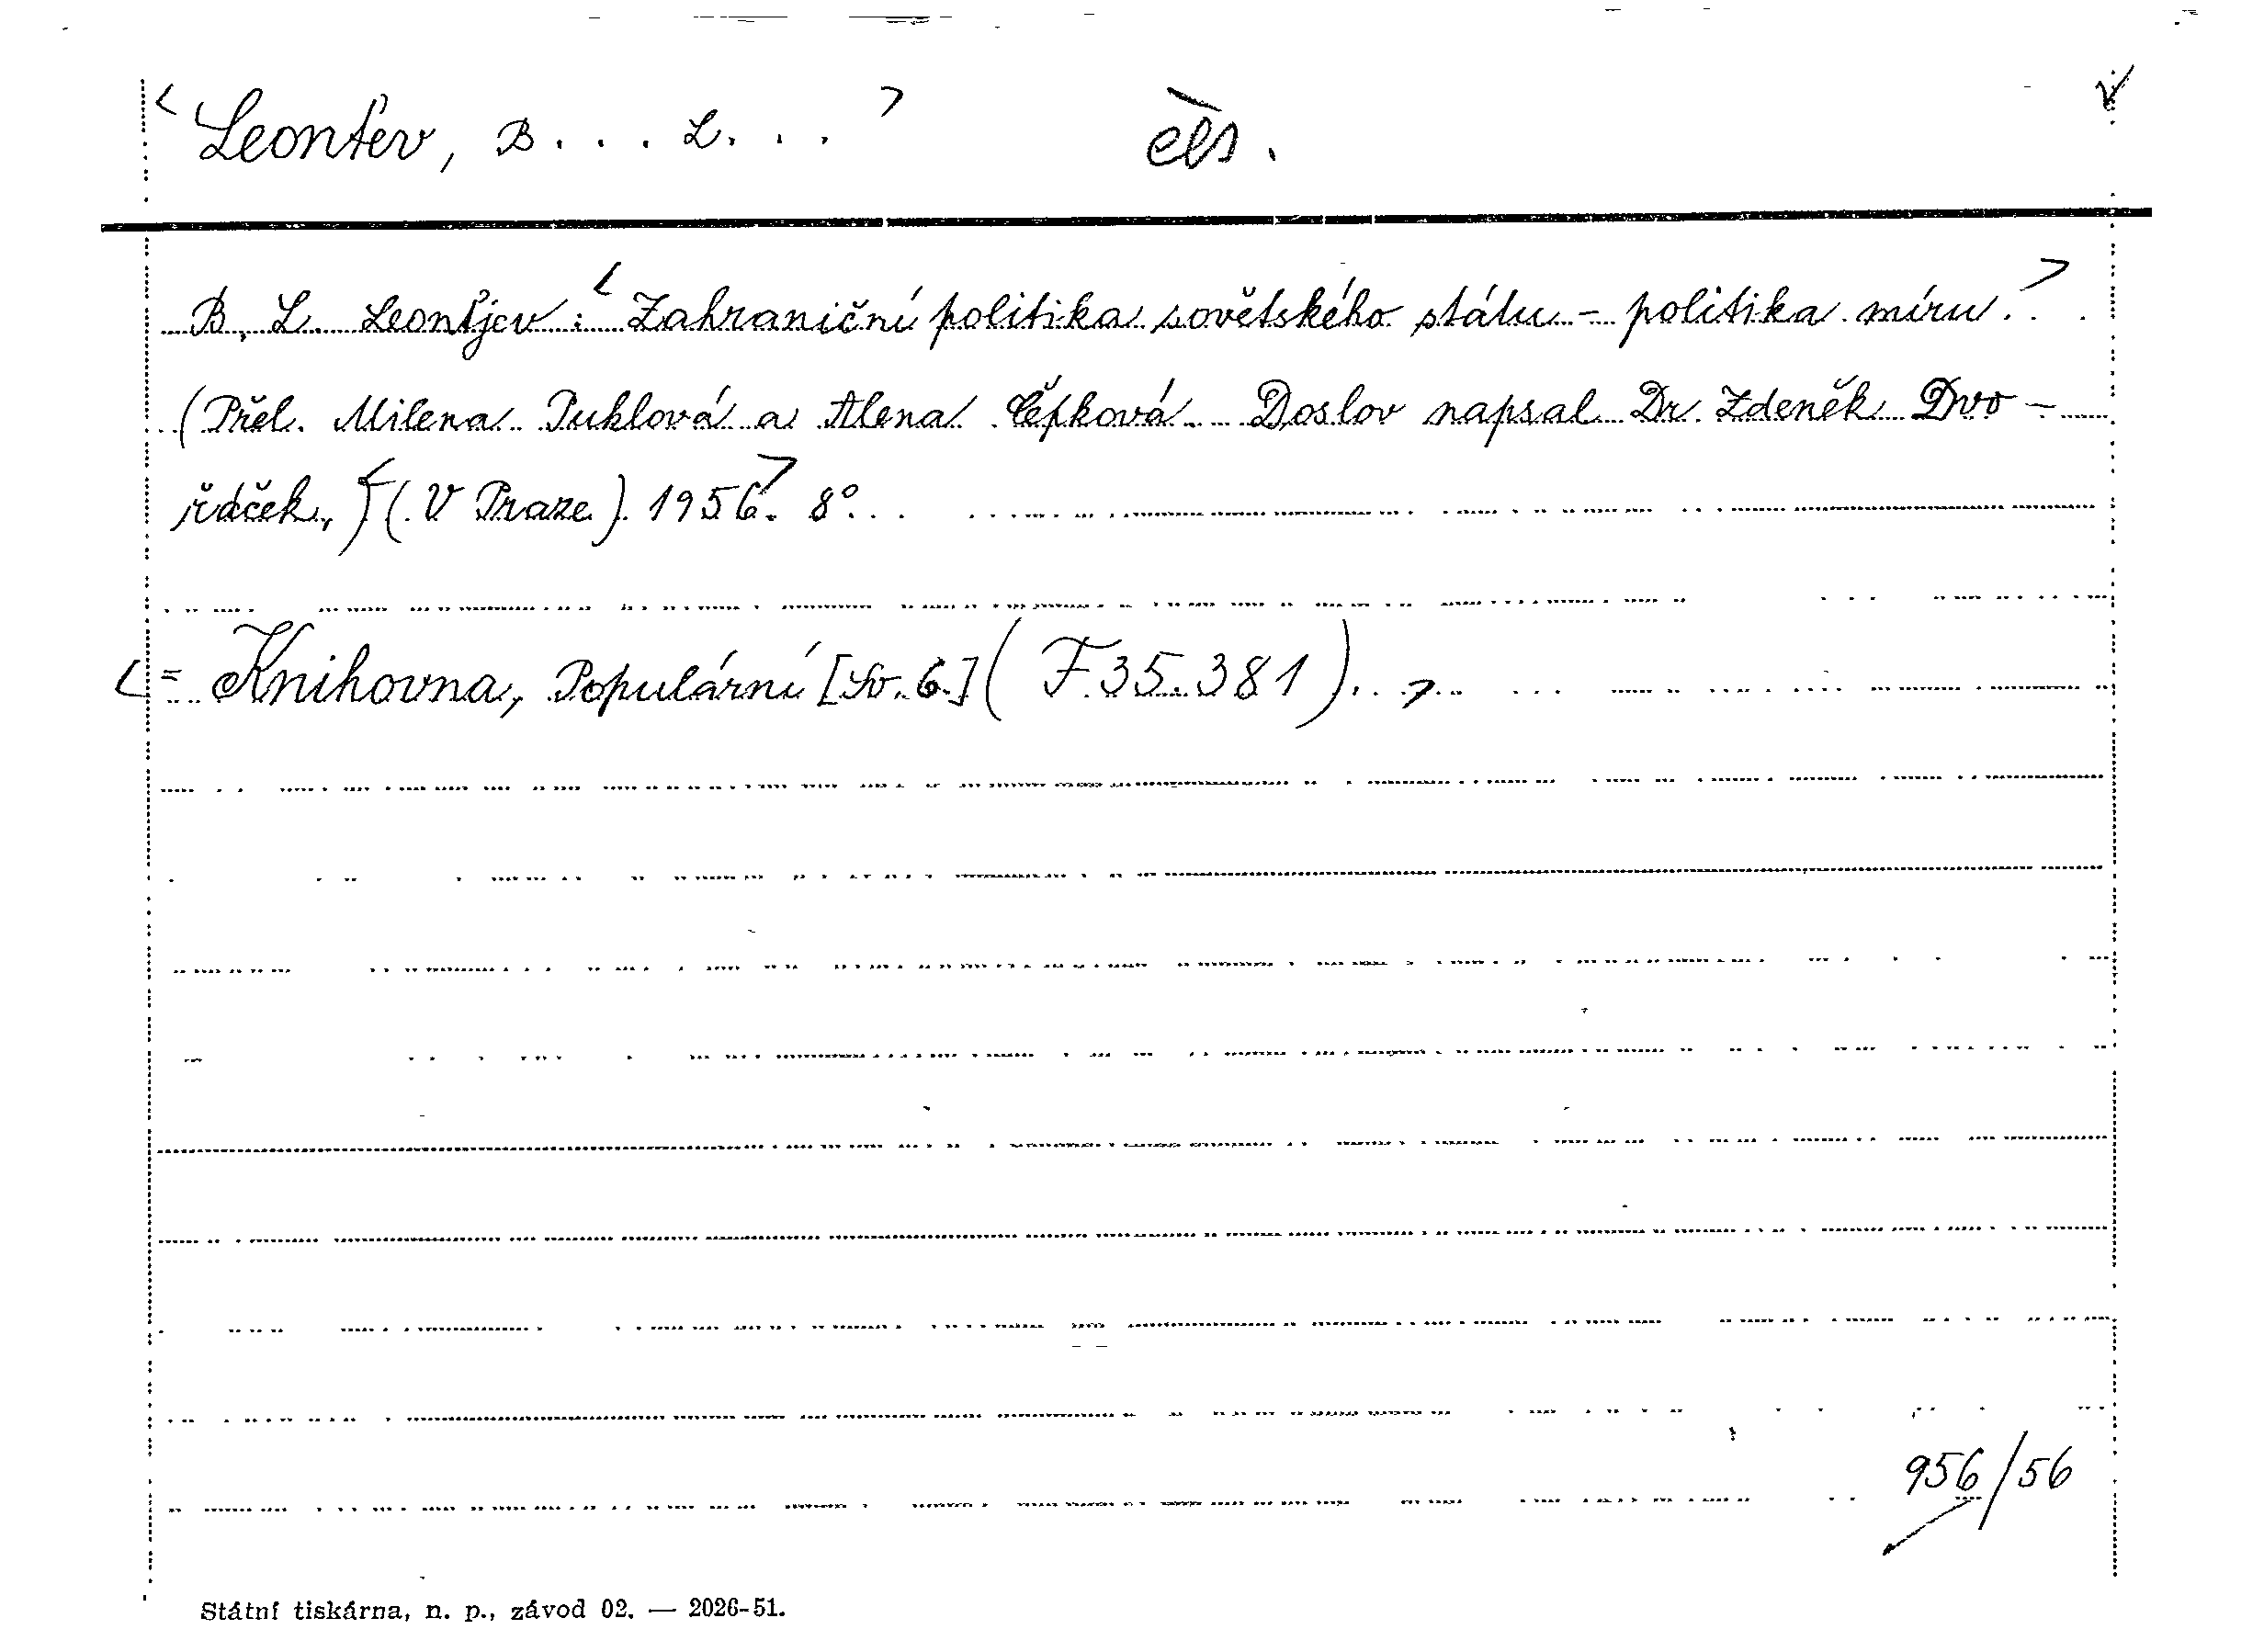 < Leonťev, B... L... > čls. √
B. L. Leonťjev: < Zahraniční politika sovětského státu - politika míru. >
(Přel. Milena Puklová a Alena Čěpková. Doslov napsal Dr. Zdeněk Dvo-
řáček.) < (V Praze) 1956. > 8°.
< = Knihovna, Populární [Sv. 6.] (F 35.381). >
956/56
Státní tiskárna, n. p., závod 02. — 2026-51.